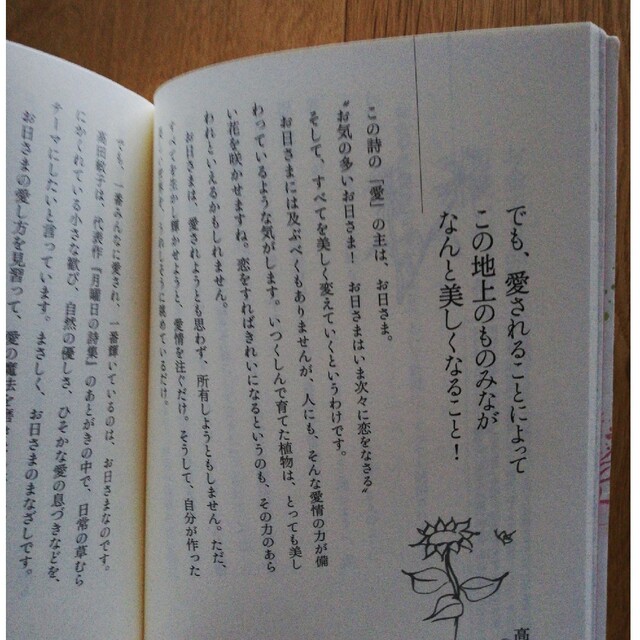 でも、愛されることによって
この地上のものみなが
なんと美しくなること！
高
この詩の「愛」の主は、お日さま。
〝お気の多いお日さま！　お日さまはいま次々に恋をなさる〟
そして、すべてを美しく変えていくというわけです。
お日さまには及ぶべくもありませんが、人にも、そんな愛情の力が備
わっているような気がします。いつくしんで育てた植物は、とっても美し
い花を咲かせますね。恋をすればきれいになるというのも、その力のあら
われといえるかもしれません。
お日さまは、愛されようとも思わず、所有しようともしません。ただ、
すべてを生かし輝かせようと、愛情を注ぐだけ。そうして、自分が作った
うれしそうに眺めているだけ。
でも、一番みんなに愛され、一番輝いているのは、お日さまなのです。
高田敏子は、代表作『月曜日の詩集』のあとがきの中で、日常の草むら
にかくれている小さな歓び、自然の優しさ、ひそかな愛の息づきなどを、
テーマにしたいと言っています。まさしく、お日さまのまなざしです。
お日さまの愛し方を見習って、愛の魔法を